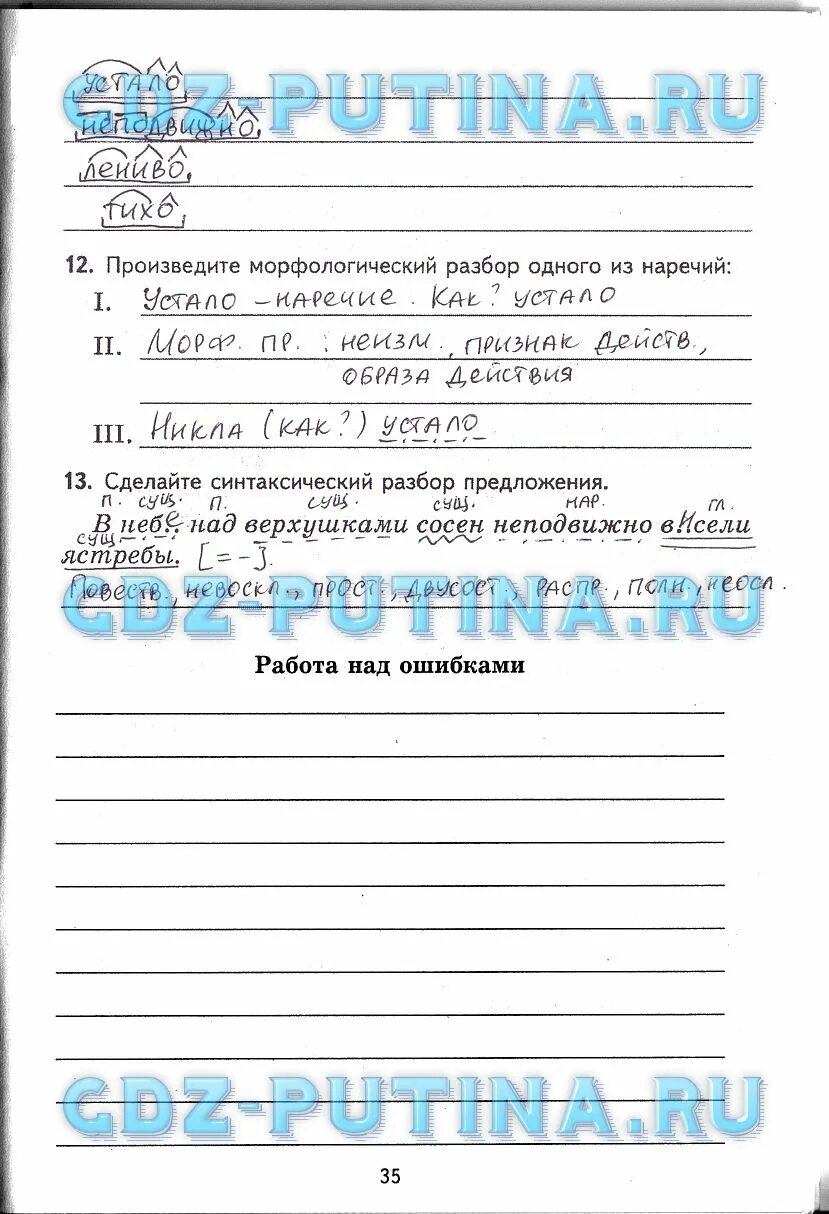 устало,
GDZ-PUTINA.RU
неподвижно,
лениво,
тихо,
12. Произведите морфологический разбор одного из наречий:
I. Устало – наречие. Как? устало
II. Морф. пр.: неизм., признак действ.,
образа действия
III. Никла (как?) устало
13. Сделайте синтаксический разбор предложения.
п. сущ. п. сущ. сущ. нар. гл.
В небе над верхушками сосен неподвижно висели
сущ.
ястребы. [= –].
Повеств., невоскл., прост., двусост., распр., полн., неосл.
GDZ-PUTINA.RU
Работа над ошибками
GDZ-PUTINA.RU
35